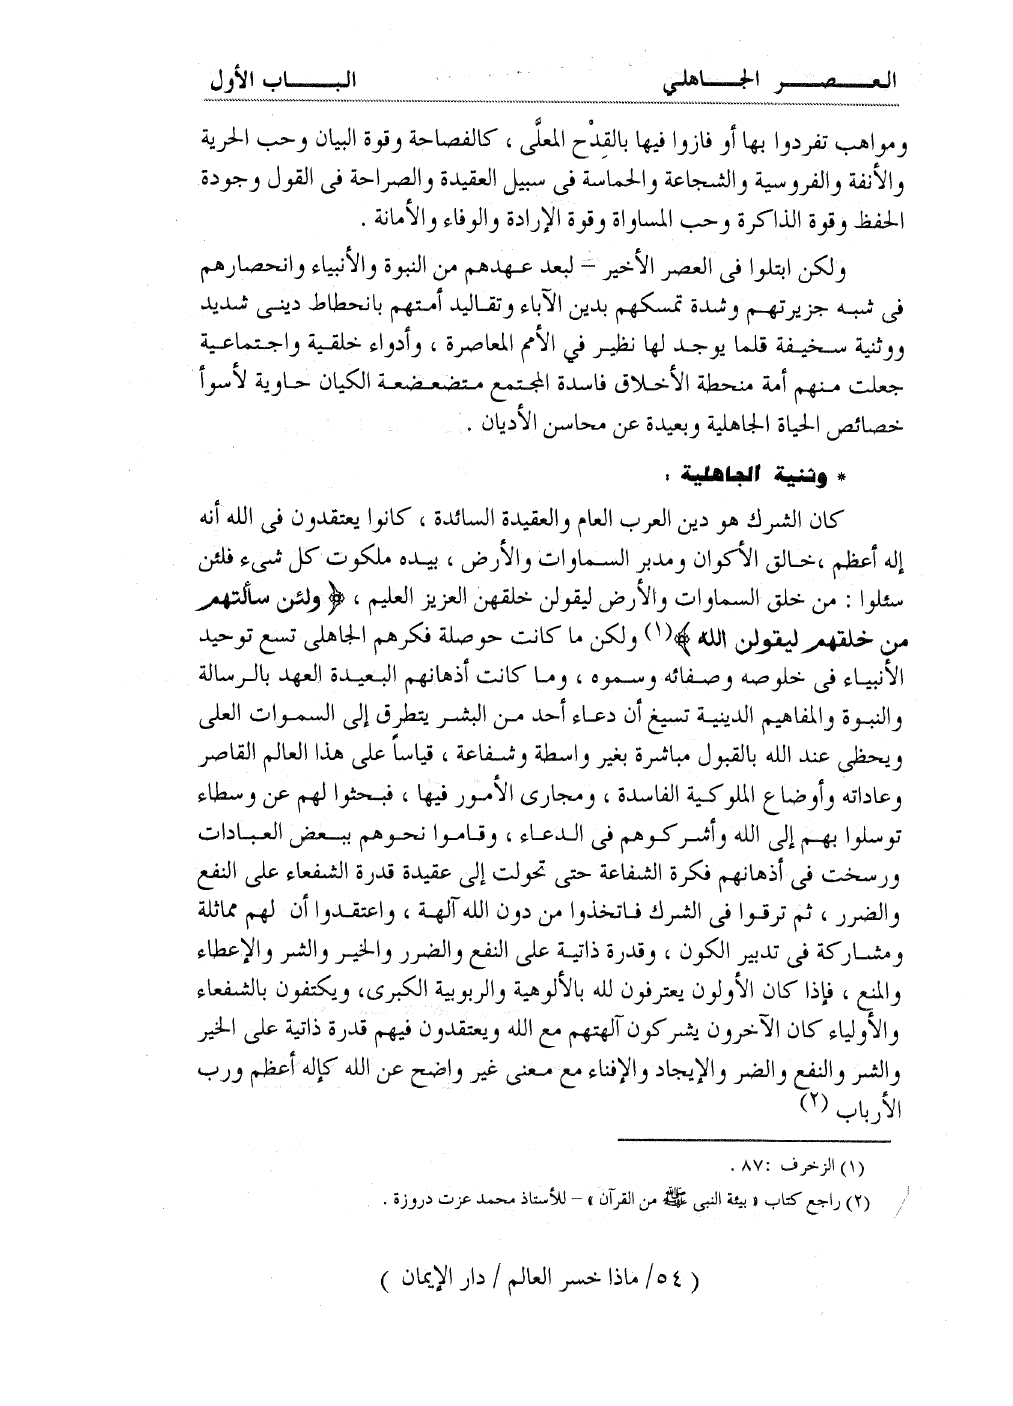 العصر الجاهلي الباب الأول
ومواهب تفردوا بها أو فازوا فيها بالقِدْح المعلَّى ، كالفصاحة وقوة البيان وحب الحرية
والأنفة والفروسية والشجاعة والحماسة فى سبيل العقيدة والصراحة فى القول وجودة
الحفظ وقوة الذاكرة وحب المساواة وقوة الإرادة والوفاء والأمانة .
ولكن ابتلوا فى العصر الأخير – لبعد عهدهم من النبوة والأنبياء وانحصارهم
فى شبه جزيرتهم وشدة تمسكهم بدين الآباء وتقاليد أمتهم بانحطاط دينى شديد
ووثنية سخيفة قلما يوجد لها نظير في الأمم المعاصرة ، وأدواء خلقية واجتماعية
جعلت منهم أمة منحطة الأخلاق فاسدة المجتمع متضعضعة الكيان حاوية لأسوأ
خصائص الحياة الجاهلية وبعيدة عن محاسن الأديان .
* وثنية الجاهلية :
كان الشرك هو دين العرب العام والعقيدة السائدة ، كانوا يعتقدون فى الله أنه
إله أعظم ،خالق الأكوان ومدبر السماوات والأرض ، بيده ملكوت كل شىء فلئن
سئلوا : من خلق السماوات والأرض ليقولن خلقهن العزيز العليم ، ﴿ ولئن سألتهم
من خلقهم ليقولن الله ﴾(١) ولكن ما كانت حوصلة فكرهم الجاهلى تسع توحيد
الأنبياء فى خلوصه وصفائه وسموه ، وما كانت أذهانهم البعيدة العهد بالرسالة
والنبوة والمفاهيم الدينية تسيغ أن دعاء أحد من البشر يتطرق إلى السموات العلى
ويحظى عند الله بالقبول مباشرة بغير واسطة وشفاعة ، قياساً على هذا العالم القاصر
وعاداته وأوضاع الملوكية الفاسدة ، ومجارى الأمور فيها ، فبحثوا لهم عن وسطاء
توسلوا بهم إلى الله وأشركوهم فى الدعاء ، وقاموا نحوهم ببعض العبادات
ورسخت فى أذهانهم فكرة الشفاعة حتى تحولت إلى عقيدة قدرة الشفعاء على النفع
والضرر ، ثم ترقوا فى الشرك فاتخذوا من دون الله آلهة ، واعتقدوا أن لهم مماثلة
ومشاركة فى تدبير الكون ، وقدرة ذاتية على النفع والضرر والخير والشر والإعطاء
والمنع ، فإذا كان الأولون يعترفون لله بالألوهية والربوبية الكبرى، ويكتفون بالشفعاء
والأولياء كان الآخرون يشركون آلهتهم مع الله ويعتقدون فيهم قدرة ذاتية على الخير
والشر والنفع والضر والإيجاد والإفناء مع معنى غير واضح عن الله كإله أعظم ورب
الأرباب (٢)
(١) الزخرف :٨٧ .
(٢) راجع كتاب « بيئة النبى ﷺ من القرآن » – للأستاذ محمد عزت دروزة .
( ٥٤/ ماذا خسر العالم / دار الإيمان )